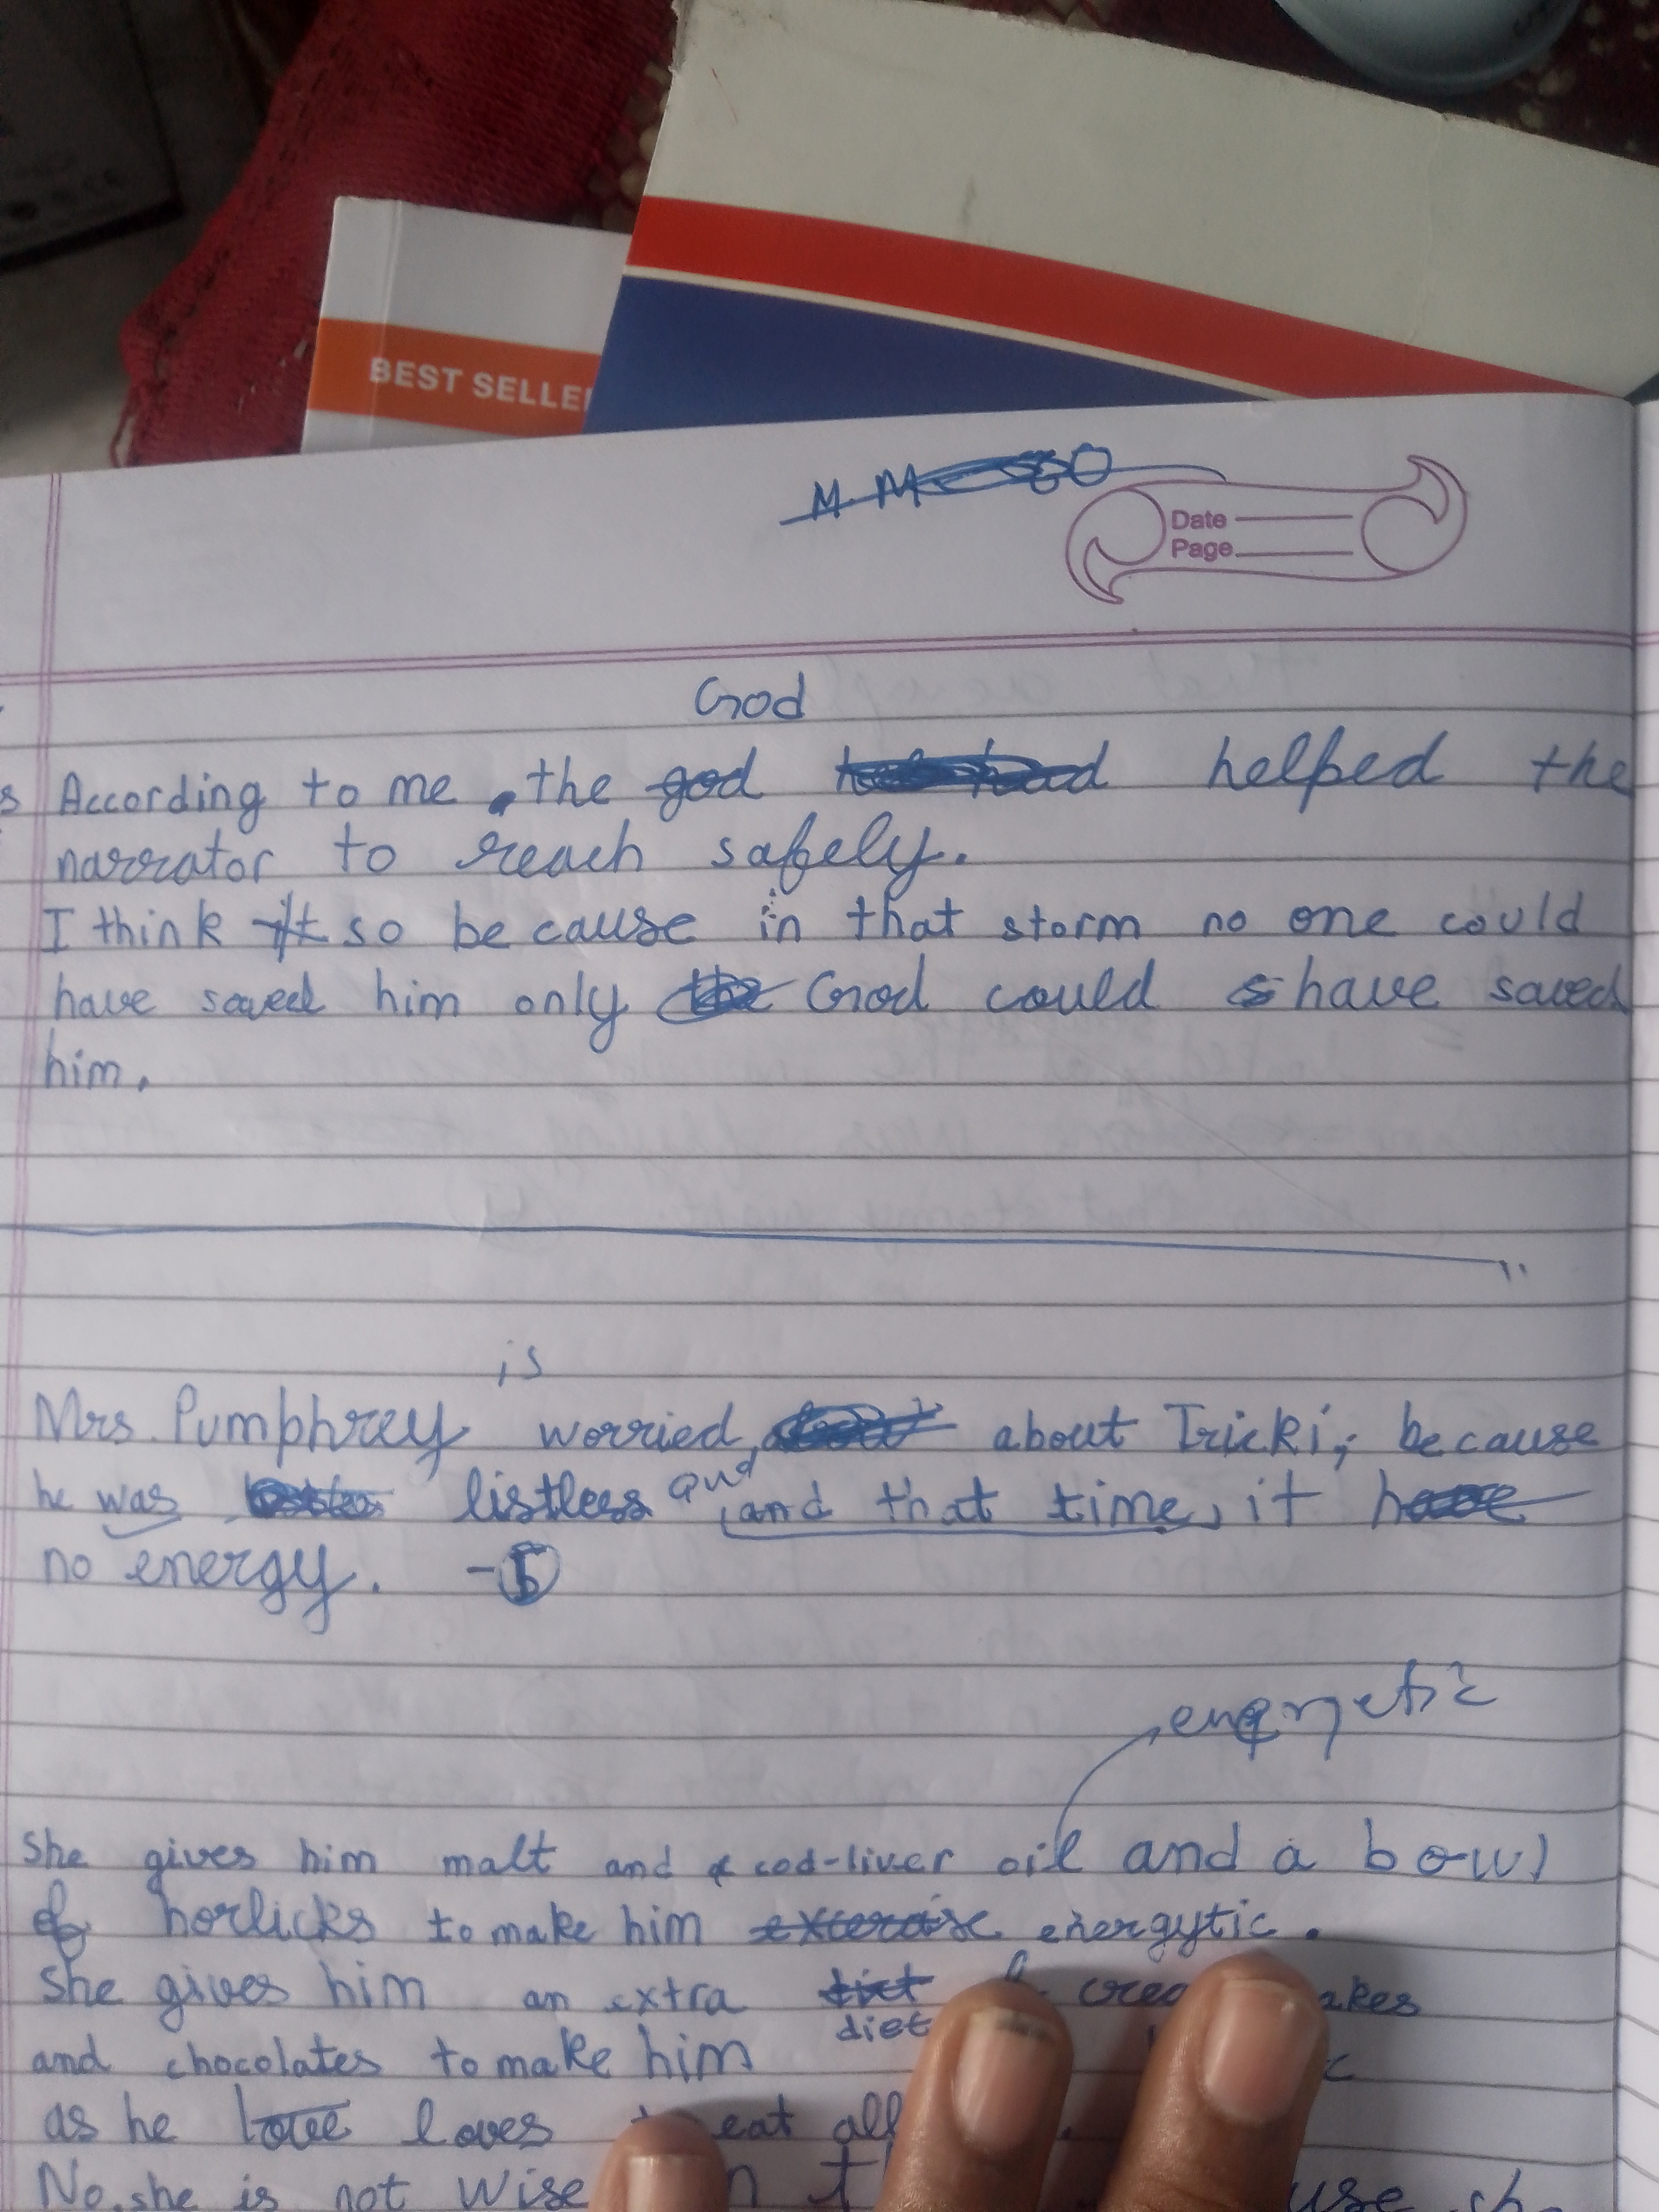 BEST SELLE
M.M
Date
Page
God
According to me, the god helped the
narrator to reach safely.
I think it so because in that storm no one could
have saved him only the God could have saved
him.
is
Mrs. Pumphrey worried about Tricki, because
and
he was listless and that time, it have
no energy. -5
energetic
She gives him malt and cod-liver oil and a bowl
of horlicks to make him excercise energytic.
She gives him an extra diet
diet
and chocolates to make him
as he love loves eat all
No, she is not wise